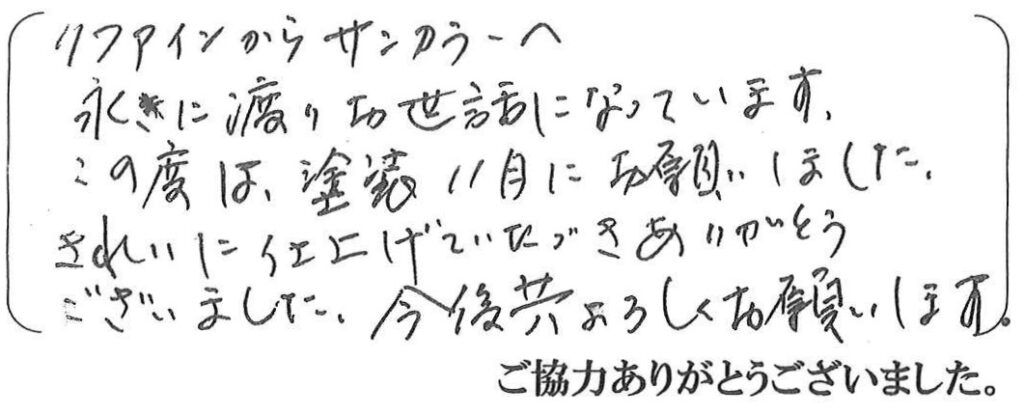 リファインからサンカラーへ
永きに渡りお世話になっています。
この度は、塗装11月にお願いしました。
きれいに仕上げていただきありがとう
ございました。今後共よろしくお願いします。
ご協力ありがとうございました。